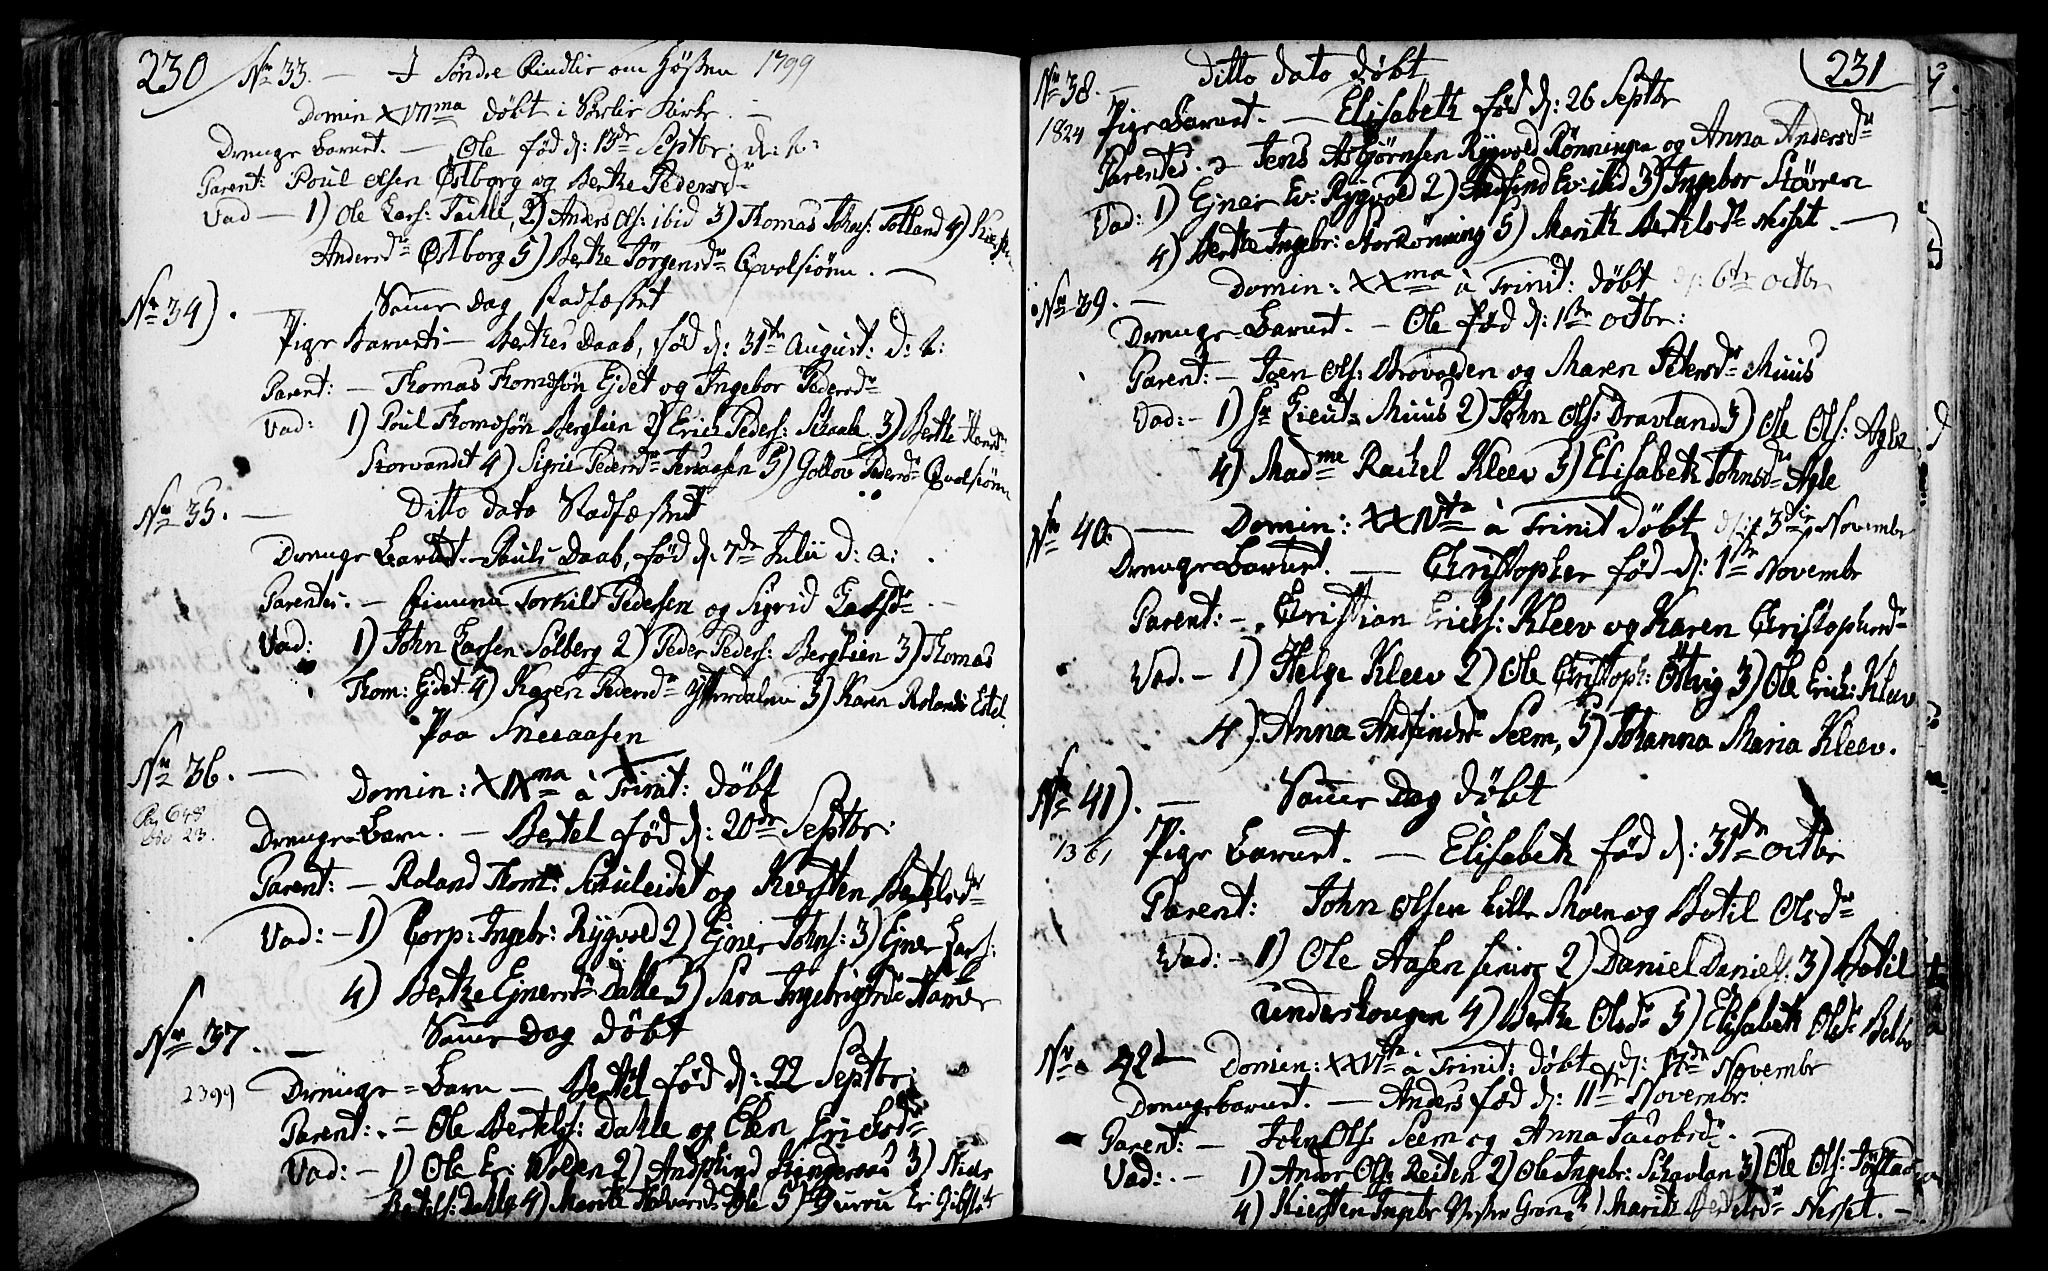 230
No 33. — I Søndre Rindlie om Høsten 1799
Domin XVIIma døbt i Skerlie Kirke. —
Drenge Barnet. — Ole fød d: 13de Septbr: d: A:
Parent: Poul Olsen Østborg og Berthe Pedersdr
Vad — 1) Ole Lars: 2) Anders Ols: ibid 3) Thomas Johns: Totland 4)
Andersdr Østborg 5) Berthe Jørgensdr Qvolsiønn. —
No 34). — Samme Dag Stadfæstet
Pige Barnets — Berthes Daab, fød d: 31te August: d: A:
Parent: — Thomas Thomæsøn Ejdet og Ingebor Pedersdr
Vad: 1) Poul Thomæsøn Berglien 2) Erich Peders: Schaale 3) Berthe
Storvandet 4) Sigrie Pedersdr 5) Gollov Pedersdr Qvolsiønn
No 35. — Ditto dato Stadfæstet
Drenge Barnet — Pouls Daab, fød d: 7de Julii d: A:
Parentes. — Torkild Pedersen og Sigrid Larsdr. —
Vad: 1) John Larsen Solberg 2) Peder Peders: Berglien 3) Thomas
Thom: Ejdet 4) Karen Pedersdr 5) Karen Rolands Estel
Paa Sneaasen
No 36. — Domin: XIXma à Trinit: døbt
Drenge-Barn. — Bertel fød d: 20de Septbr:
Parent: — Roland Thom: og Kersten Bertelsdr
Vad: — 1) Corp: Ingebr: Rygvold 2) Ejner Johns: 3) Ejner Lars:
4) Berthe Ejnersdr Dahle 5) Sara Ingebrigtsdr
No 37. — Samme Dag døbt
2399 Drenge-Barn — Bertel fød d: 22 Septbr:
Parent: — Ole Bertels: Dahle og Elen Erichsdr
Vad: — 1) Ole Er: Wolden 2) Andfind 3)
Bertels: Dahle 4) Marith 5)
231
No 38. — Ditto dato døbt
1824 Pige Barnet. — Elisabeth fød d: 26 Septbr
Parentes. — Jens Asbjørnsen Rygvold Rønningen og Anna Andersdr
Vad: 1) Ejner Ev: Rygvold 2) Andfind Ev: ibid 3) Ingebor Støvren
4) Berthe Ingebr: Storrønning 5) Marith Bertilsdr Nesset. —
No 39. — Domin: XXma à Trinit: døbt d: 6te Octbr
Drenge-Barnet. — Ole fød d: 1ste Octbr:
Parent: — Joen Ols: Brovolden og Maren Petersdr Muus
Vad: — 1) Hr Lieut: Muus 2) John Ols: Dravland 3) Ole Ols: Agle
4) Madme Rachel Kleev 5) Elisabeth Johnsdr Agle
No 40. — Domin: XXIVta à Trinit døbt d: 3die Novembr
Drenge Barnet. — Christopher fød d: 1ste Novembr
Parent: — Christian Erichs: Kleev og Karen Christophersdr
Vad. — 1) Helge Kleev 2) Ole Christoph: Østvig 3) Ole Erich: Kleev
4) Anna Andfindsdr Seem, 5) Johanna Maria Kleev.
No 41). — Samme Dag døbt
1361 Pige Barnet. — Elisabeth fød d: 31te Octbr
Parent: John Olsen Lille Moen og Botil Olsdr
Vad: — 1) Ole Aasen senior 2) Daniel Daniels: 3) Botil
Underskougen 4) Berthe Olsdr 5) Elisabeth Olsdr Belbo
No 42 — Domin: XXVIta à Trinit: døbt d: 17de Novembr
Drengebarnet. — Anders fød d: 11te Novembr:
Parent: — John Ols: Seem og Anna Jacobsdr.
Vad: — 1) Andor Ols: Reiten 2) Ole Ingebr: Schavlan 3) Ole Ols:
4) Kiersten Ingebr 5) Marith Bertelsdr Nesset. —